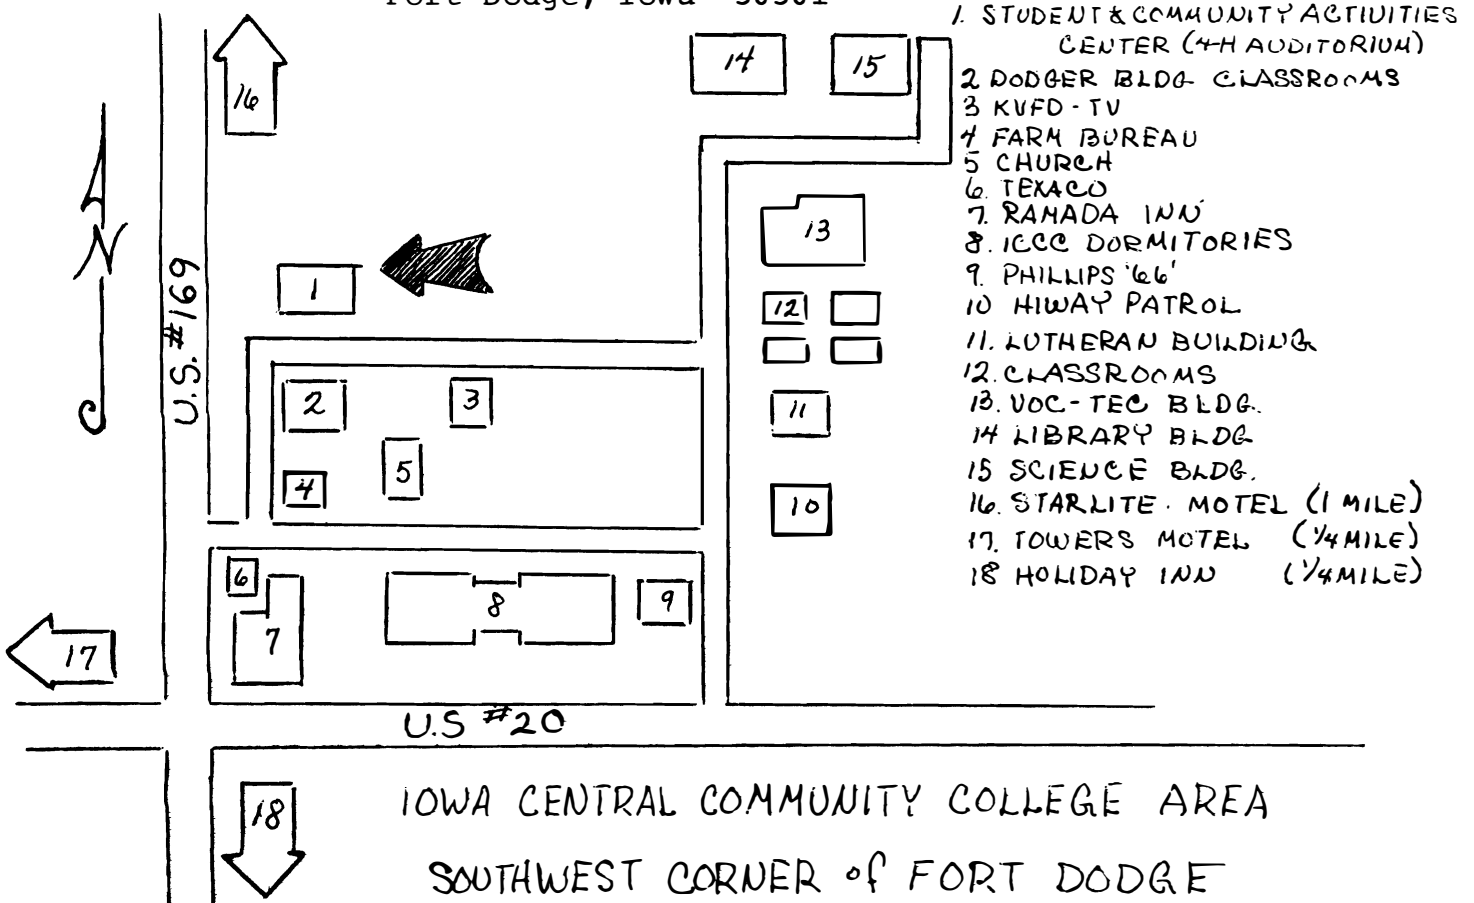 Fort Dodge, Iowa 50501
1. STUDENT & COMMUNITY ACTIVITIES
CENTER (4-H AUDITORIUM)
2 DODGER BLDG CLASSROOMS
3 KVFD-TV
4 FARM BUREAU
5 CHURCH
6. TEXACO
7. RAMADA INN
8. ICCC DORMITORIES
9. PHILLIPS '66'
10 HIWAY PATROL
11. LUTHERAN BUILDING
12. CLASSROOMS
13. VOC-TEC BLDG.
14 LIBRARY BLDG
15 SCIENCE BLDG.
16. STARLITE. MOTEL (1 MILE)
17. TOWERS MOTEL (1/4 MILE)
18 HOLIDAY INN (1/4 MILE)
16
14
15
N
13
1
U.S. #169
12
2
3
11
5
4
10
6
8
9
7
17
U.S #20
18
IOWA CENTRAL COMMUNITY COLLEGE AREA
SOUTHWEST CORNER of FORT DODGE